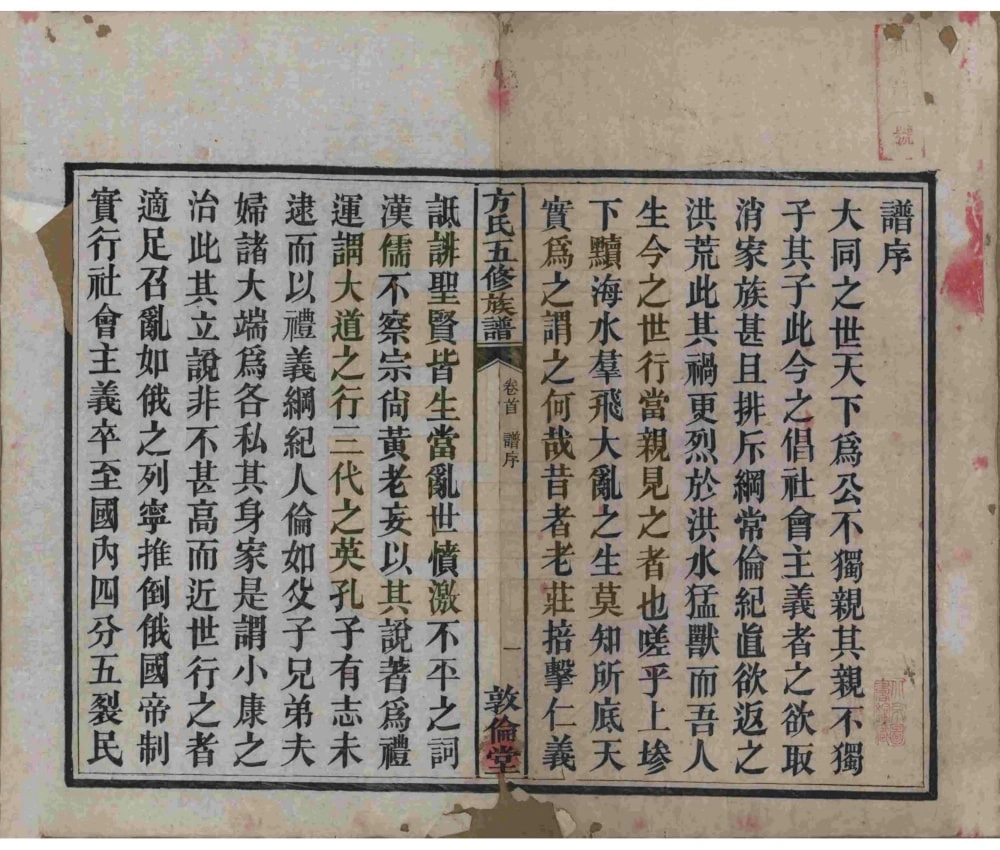 譜序
大同之世天下爲公不獨親其親不獨
子其子此今之倡社會主義者之欲取
消家族甚且排斥綱常倫紀直欲返之
洪荒此其禍更烈於洪水猛獸而吾人
生今之世行當親見之者也嗟乎上墋
下黷海水羣飛大亂之生莫知所底天
實爲之謂之何哉昔者老莊掊擊仁義
方氏五修族譜
卷首 譜序
一
敦倫堂
詆誹聖賢皆生當亂世憤激不平之詞
漢儒不察宗尙黃老妄以其說著爲禮
運謂大道之行三代之英孔子有志未
逮而以禮義綱紀人倫如父子兄弟夫
婦諸大端爲各私其身家是謂小康之
治此其立說非不甚高而近世行之者
適足召亂如俄之列寧推倒俄國帝制
實行社會主義卒至國內四分五裂民
號